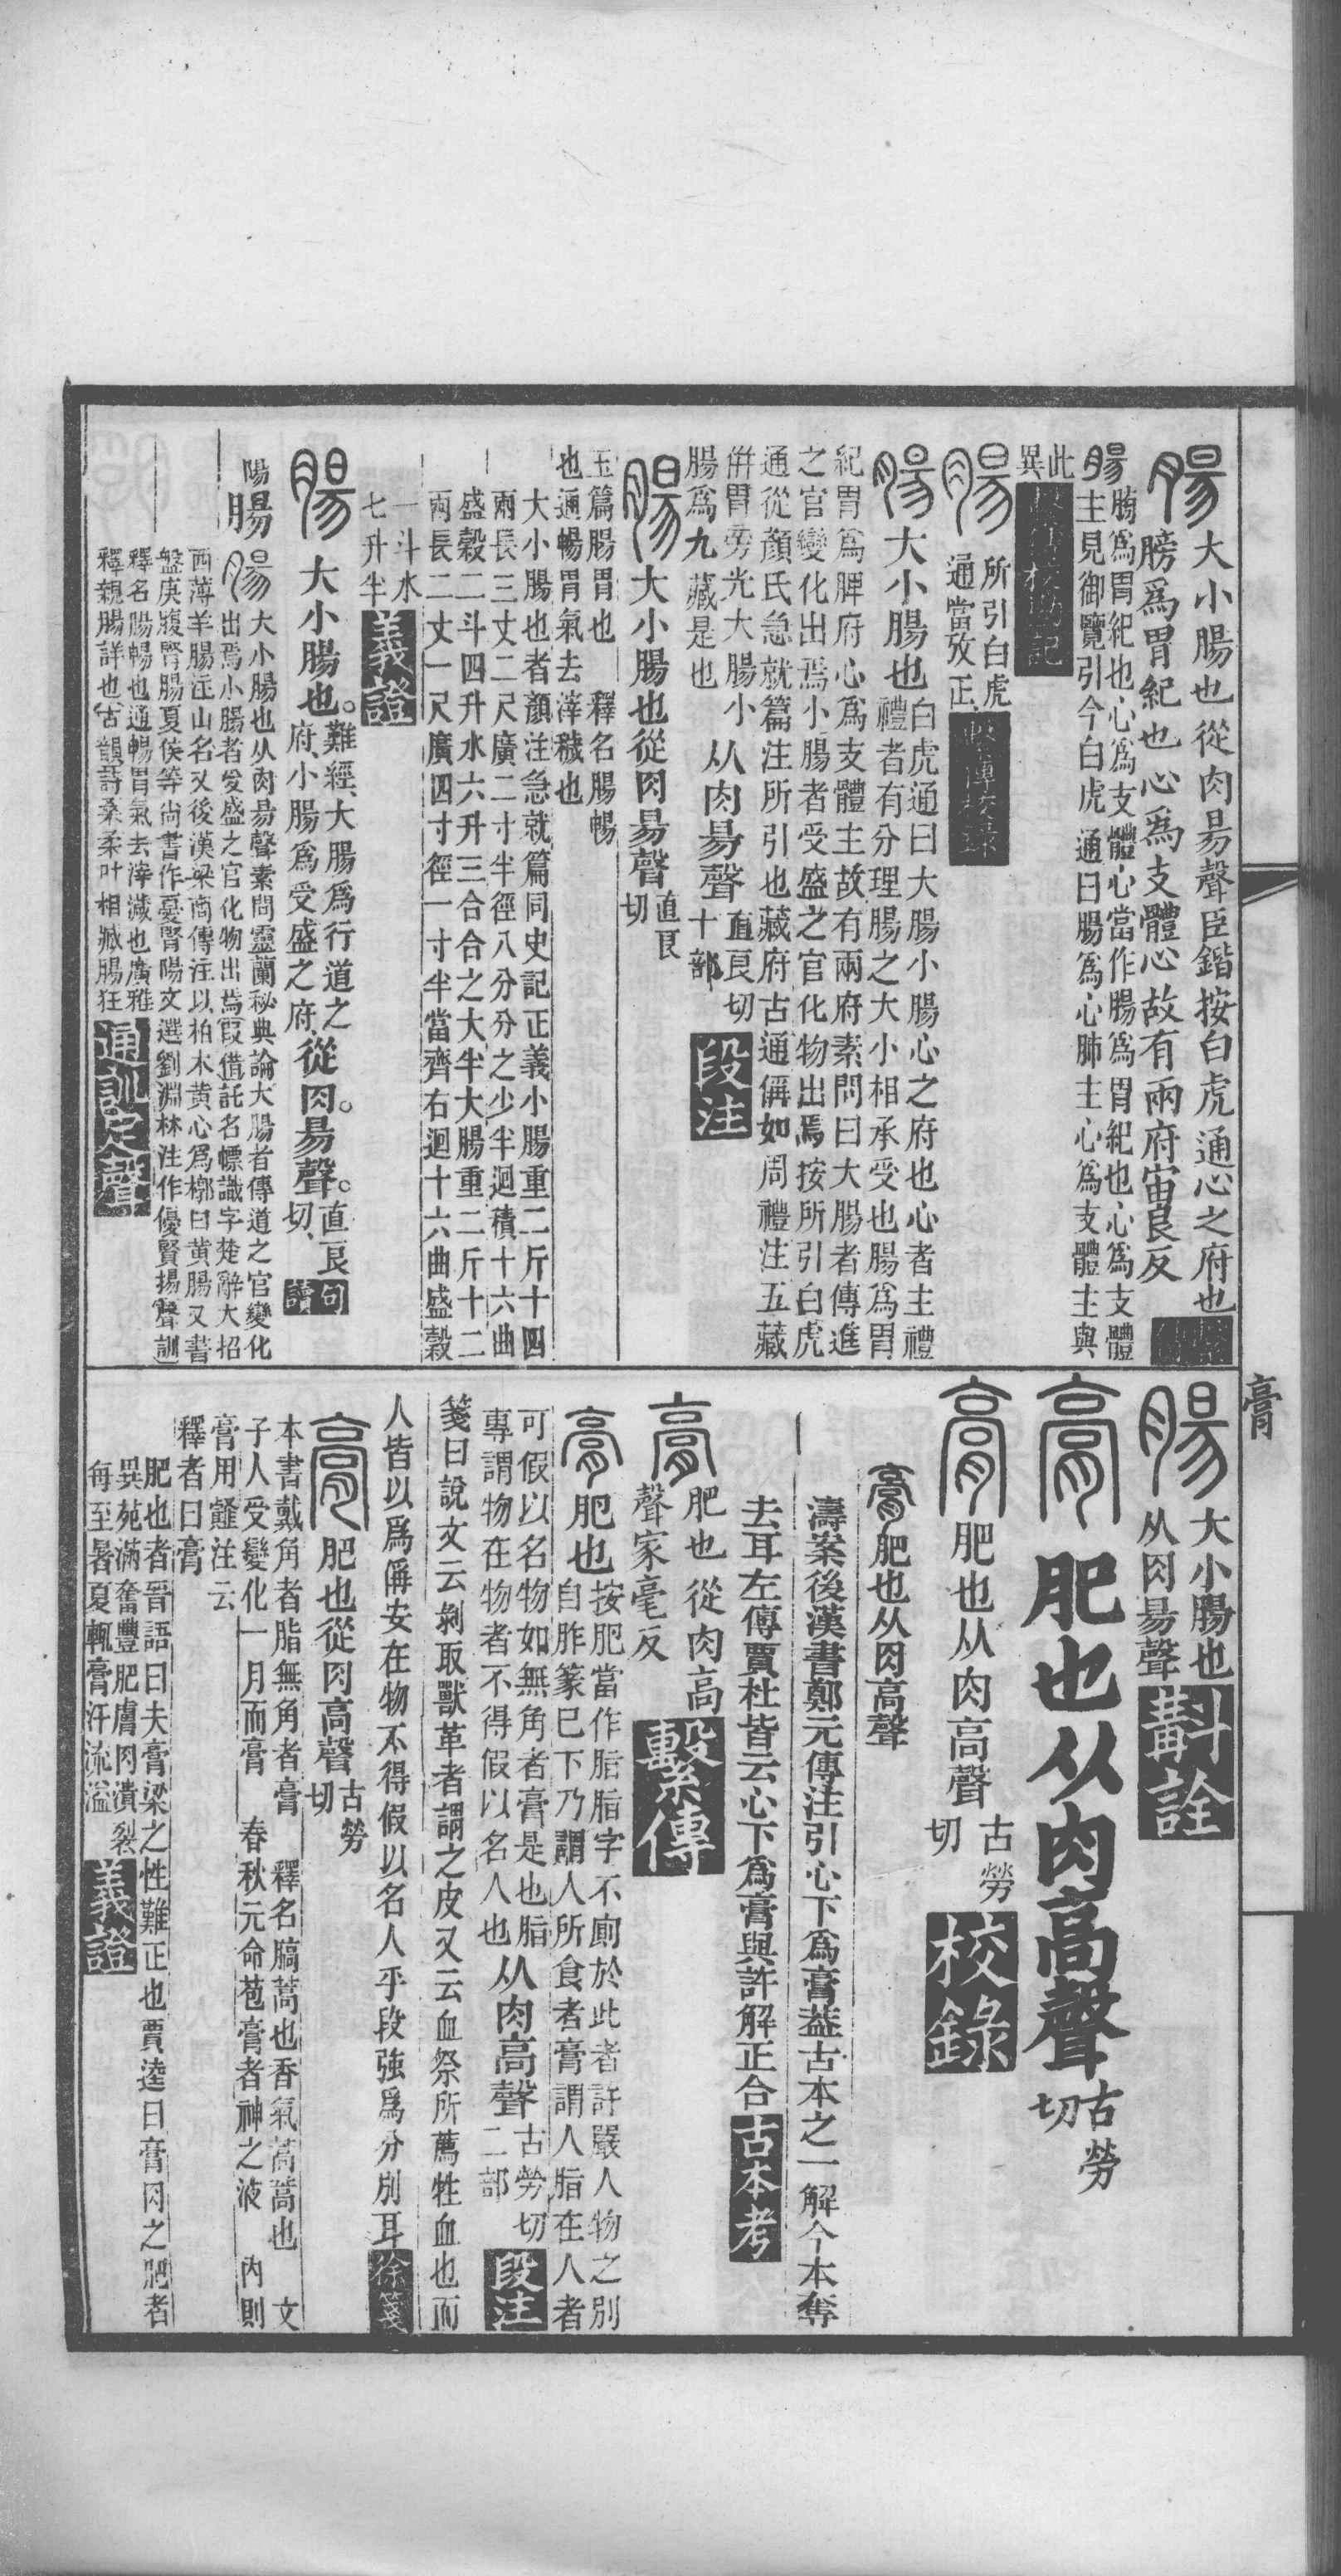 腸大小腸也從肉昜聲臣鍇按白虎通心之府也
膀爲胃紀也心爲支體心故有兩府宙良反
繫傳
腸膀爲胃紀也心爲支體心當作腸爲胃紀也心爲支體
主見御覽引今白虎通曰腸爲心肺主心爲支體主與
此
異
繫傳校勘記
腸所引白虎
通當攷正
繫傳校錄
腸大小腸也白虎通曰大腸小腸心之府也心者主禮
禮者有分理腸之大小相承受也腸爲胃
紀胃爲脾府心爲支體主故有兩府素問曰大腸者傳進
之官變化出焉小腸者受盛之官化物出焉按所引白虎
通從顏氏急就篇注所引也藏府古通偁如周禮注五藏
倂胃旁光大腸小
腸爲九藏是也
从肉昜聲直良切
十部
段注
腸大小腸也從肉昜聲直良
切
玉篇腸胃也 釋名腸暢
也通暢胃氣去滓穢也
大小腸也者顏注急就篇同史記正義小腸重二斤十四
兩長三丈二尺廣二寸半徑八分分之少半迴積十六曲
盛穀二斗四升水六升三合合之大半大腸重二斤十二
兩長二丈一尺廣四寸徑一寸半當齊右迴十六曲盛穀
一斗水
七升半
義證
腸大小腸也。難經、大腸爲行道之
府、小腸爲受盛之府、
從肉。昜聲。直良
切、
句讀
陽腸腸大小腸也从肉昜聲素問靈蘭秘典論大腸者傳道之官變化
出焉小腸者受盛之官化物出焉叚借託名幖識字楚辭大招
西薄羊腸注山名又後漢梁商傳注以柏木黄心爲槨曰黄腸又書
盤庚腹腎腸夏侯等尚書作憂腎陽文選劉淵林注作優賢揚聲訓
釋名腸暢也通暢胃氣去滓濊也廣雅
釋親腸詳也古韻詩桑柔叶相臧腸狂
通訓定聲
膏
腸大小腸也
从肉昜聲
斠詮
膏肥也从肉高聲古勞
切
膏肥也从肉高聲古勞
切
校錄
膏肥也从肉高聲
濤案後漢書鄭元傳注引心下爲膏葢古本之一解今本奪
去耳左傳賈杜皆云心下爲膏與許解正合
古本考
膏肥也從肉高
聲家毫反
繫傳
膏肥也按肥當作脂脂字不廁於此者許嚴人物之別
自胙篆巳下乃謂人所食者膏謂人脂在人者
可假以名物如無角者膏是也脂
專謂物在物者不得假以名人也
从肉高聲古勞切
二部
段注
箋曰說文云剝取獸革者謂之皮又云血祭所薦牲血也而
人皆以爲偁安在物不得假以名人乎段強爲分別耳
徐箋
膏肥也從肉高聲古勞
切
本書戴角者脂無角者膏 釋名膈蒿也香氣蒿蒿也 文
子人受變化一月而膏 春秋元命苞膏者神之液 內則
膏用薤注云
釋者曰膏
肥也者晉語曰夫膏粱之性難正也賈逵曰膏肉之肥者
異苑滿奮豐肥膚肉潰裂
每至暑夏輒膏汗流溢
義證